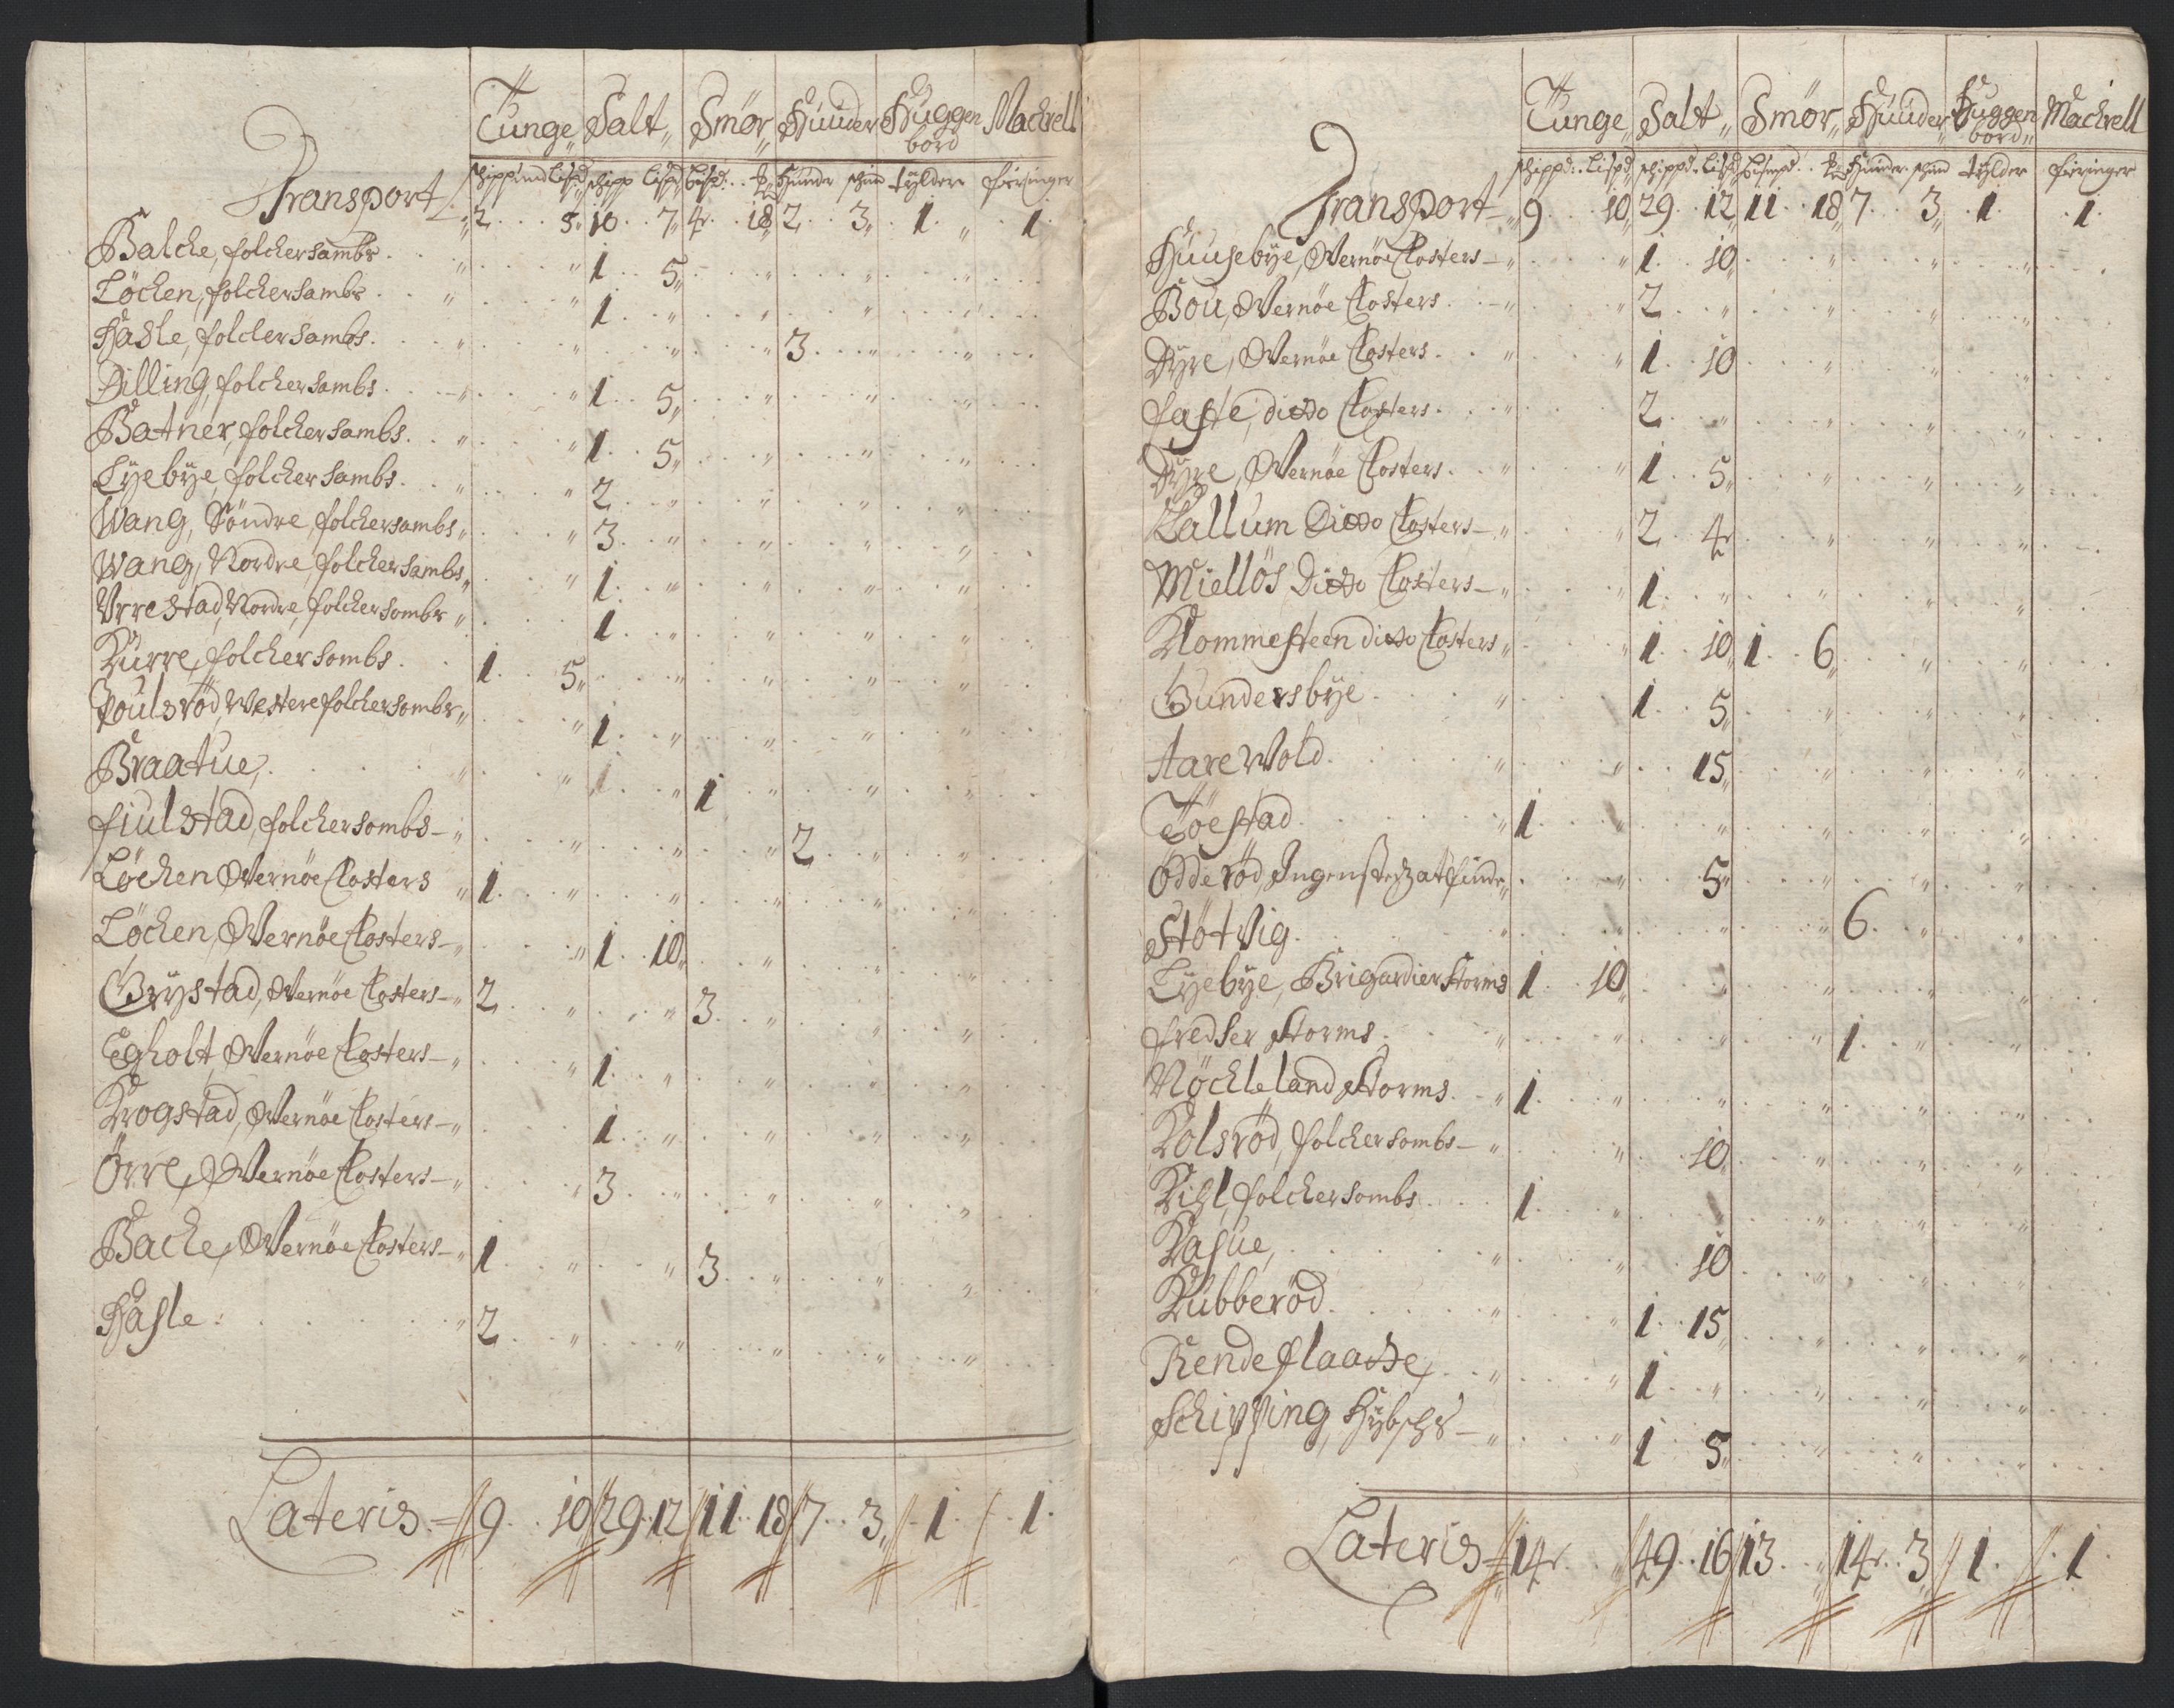 Tunge Salt Smør Huuder Huggen bord Mackrell
Schippund Lispd schipp Lispd Bispd ℔ Huuder schind tylder föringer
Transport 2 5 10 7 4 18 2 3 1 1
Balche, folchersambs 1 5
Löchen, folchersambs 1
Hasle, folchersambs 3
Dilling, folchersambs 1 5
Batner, folchersambs 1 5
Lyebye, folchersambs 2
Wang, Söndre, folchersambs 3
Wang, Nordre, folchersambs 1
Urrestad, Nordre, folchersombs 1
Kurre, folchersombs 1 5
Poulsröd, Westere folchersombs 1
Braatue, 1
fiulstad, folchersombs 2
Löchen Wernöe Closters 1
Löchen, Wernöe Closters 1 10
Grystad, Wernöe Closters 2 3
Egholt, Wernöe Closters 1
Krogstad, Wernöe Closters 1
Örre, Wernöe Closters 3
Bache, Wernöe Closters 1 3
Hasle 2
Lateris 9 10 29 12 11 18 7 3 1 1
Tunge Salt Smör Huuder Huggen bord Mackrell
schippd Lispd schippd Lispd Bismpd ℔ Huuder schind tylder föringer
Transport 9 10 29 12 11 18 7 3 1 1
Huusebye, Wernöe Closters 1 10
Bou, Wernöe Closters 2
Dyre, Wernöe Closters 1 10
faste, ditto Closters 2
Dyre, Wernöe Closters 1 5
Kallum Ditto Closters 2 4
Miellös Ditto Closters 1
Klommesteen ditto Closters 1 10 1 6
Gundersbye 1 5
Aarevold 15
Töestad 1
Ödderöd Ingensteds at finde 5
Stötvig 6
Lyebye, Brigardier Storms 1 10
fredser Storms 1
Nöckleland Storms 1
Kolsröd, folchersombs 10
Kihl, folchersombs 1
Kasue, 10
Kubberöd 1 15
Rendeflaatte, 1
Schipping, Hybschs 1 5
Lateris 14 49 16 13 14 3 1 1